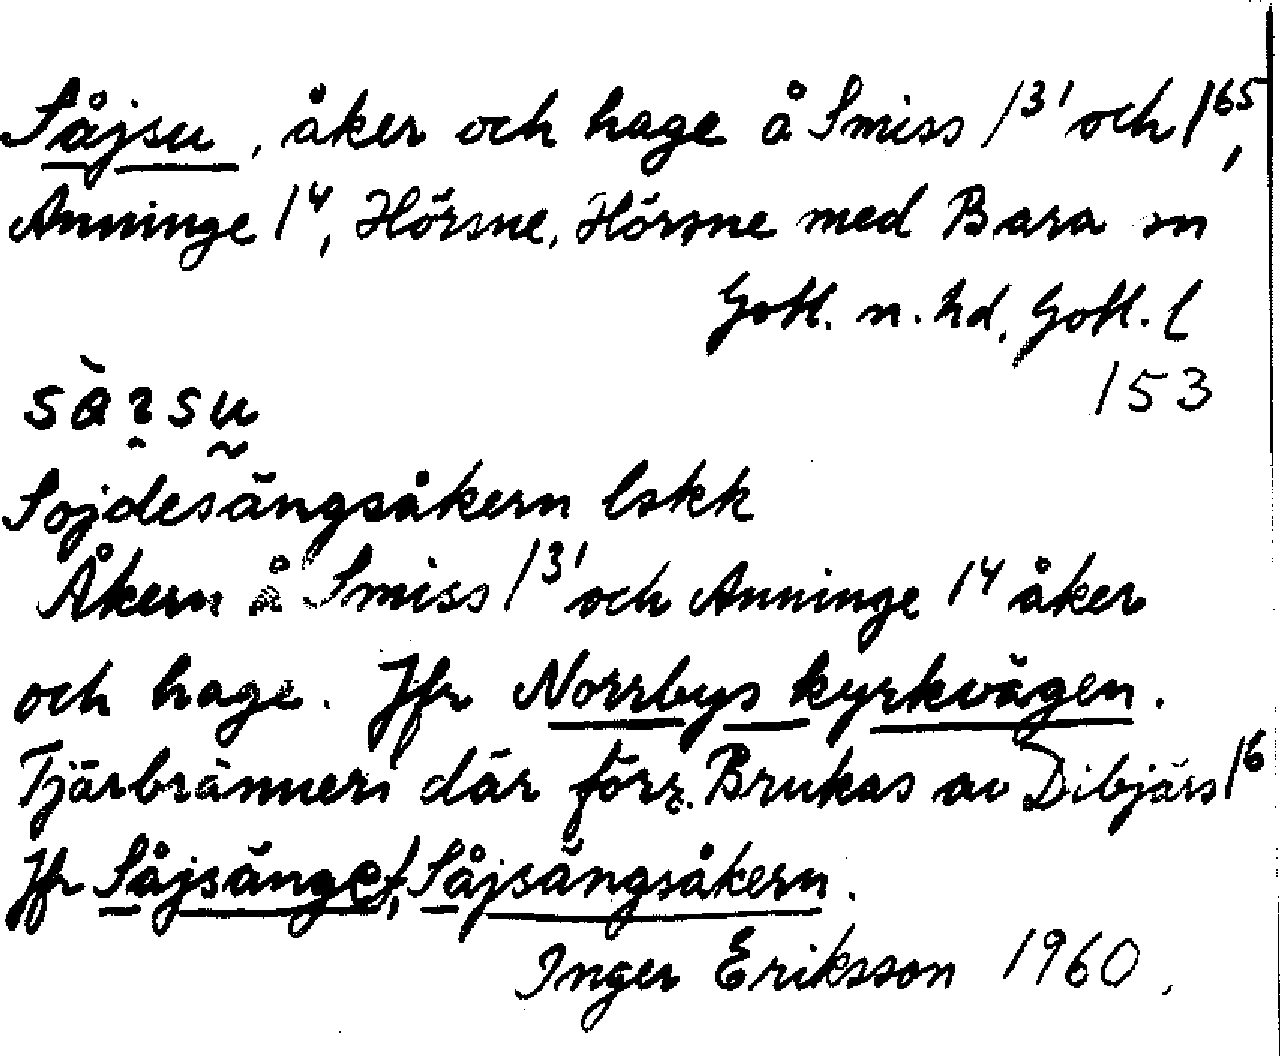 Såjsu, åker och hage å Smiss 1³¹ och 1⁶⁵,
Anninge 1⁴, Hörsne, Hörsne med Bara sn
Gotl. n. hd, Gotl. l
153
sàɿsu
Sojdesängsåkern lskk
Åkern å Smiss 1³¹ och Anninge 1⁴ åker
och hage. Jfr Norrbys kyrkvägen.
Tjärbränneri där förr. Brukas av Dibjärs 1⁶
Jfr Såjsänget, Såjsängsåkern.
Inger Eriksson 1960.